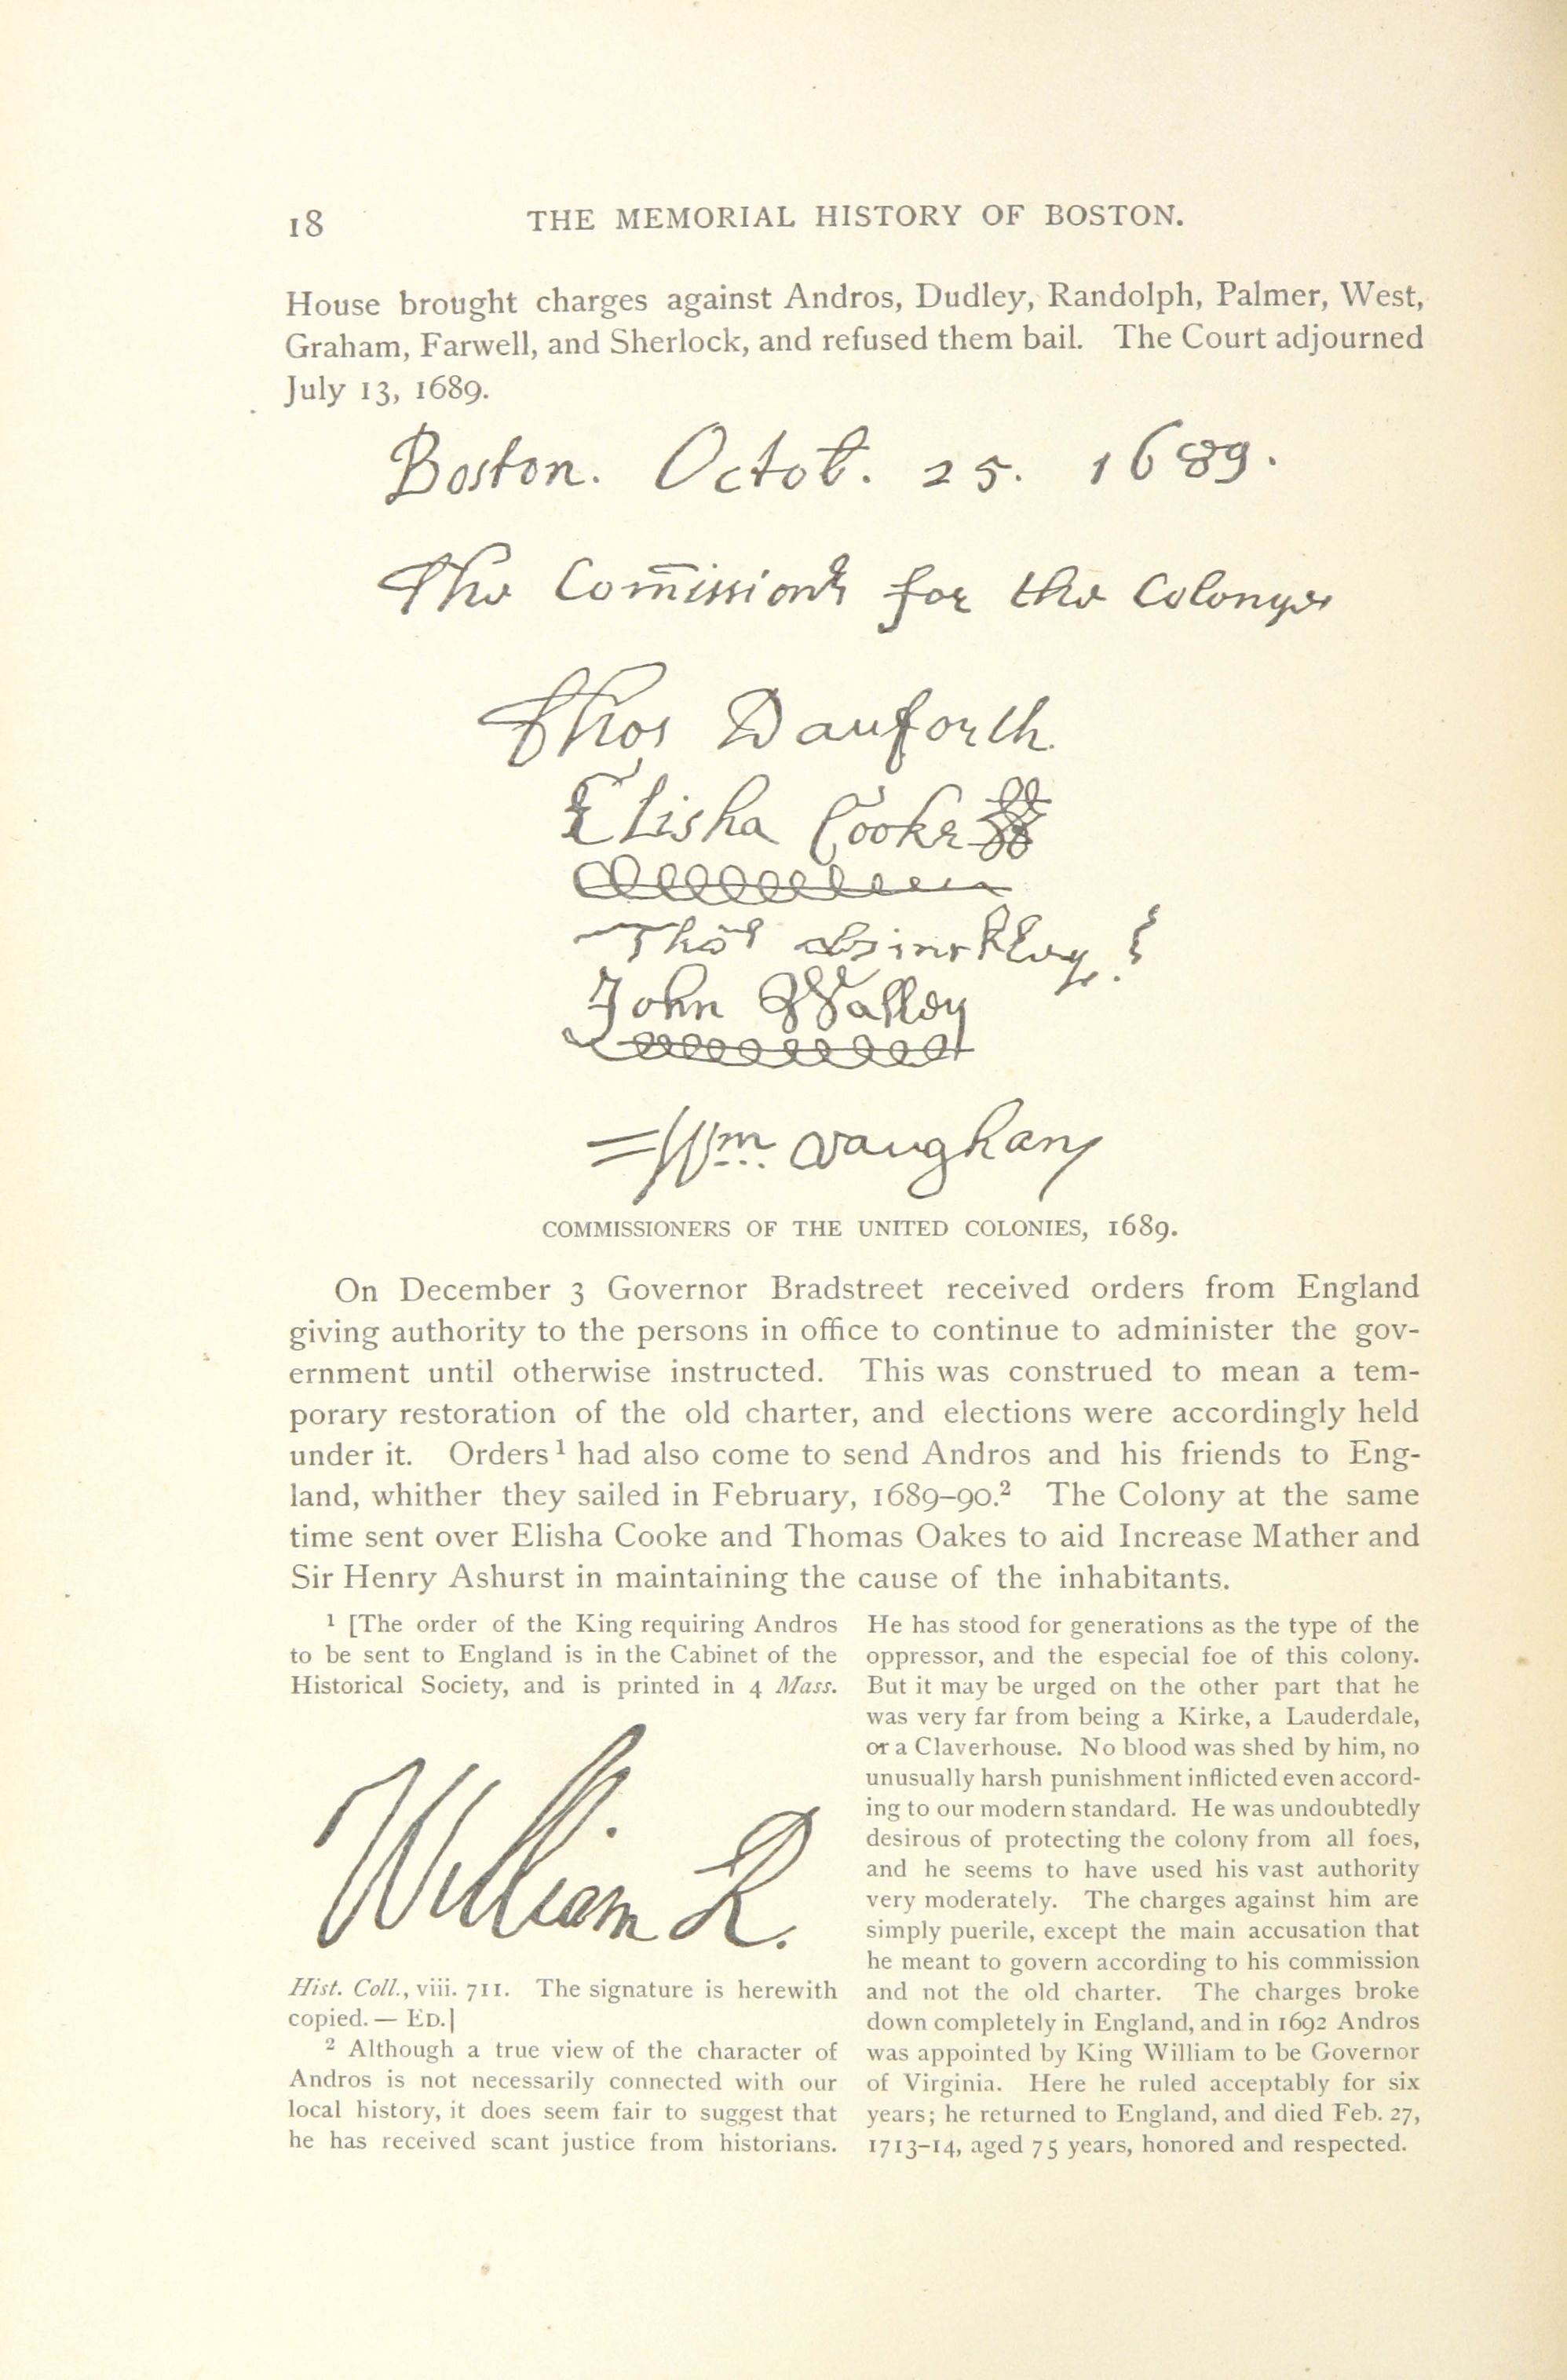 18
THE MEMORIAL HISTORY OF BOSTON.
House brought charges against Andros, Dudley, Randolph, Palmer, West,
Graham, Farwell, and Sherlock, and refused them bail. The Court adjourned
July 13, 1689.
Boston. Octob. 25. 1689.
The Com̄ission^rs for the Colonyes
Thos Danforth.
Elisha Cooke
Tho^s Hinckley
John Walley
W^m. Vaughan
COMMISSIONERS OF THE UNITED COLONIES, 1689.
On December 3 Governor Bradstreet received orders from England
giving authority to the persons in office to continue to administer the gov-
ernment until otherwise instructed. This was construed to mean a tem-
porary restoration of the old charter, and elections were accordingly held
under it. Orders¹ had also come to send Andros and his friends to Eng-
land, whither they sailed in February, 1689–90.² The Colony at the same
time sent over Elisha Cooke and Thomas Oakes to aid Increase Mather and
Sir Henry Ashurst in maintaining the cause of the inhabitants.
¹ [The order of the King requiring Andros
to be sent to England is in the Cabinet of the
Historical Society, and is printed in 4 Mass.
William R.
Hist. Coll., viii. 711. The signature is herewith
copied. — ED.]
² Although a true view of the character of
Andros is not necessarily connected with our
local history, it does seem fair to suggest that
he has received scant justice from historians.
He has stood for generations as the type of the
oppressor, and the especial foe of this colony.
But it may be urged on the other part that he
was very far from being a Kirke, a Lauderdale,
or a Claverhouse. No blood was shed by him, no
unusually harsh punishment inflicted even accord-
ing to our modern standard. He was undoubtedly
desirous of protecting the colony from all foes,
and he seems to have used his vast authority
very moderately. The charges against him are
simply puerile, except the main accusation that
he meant to govern according to his commission
and not the old charter. The charges broke
down completely in England, and in 1692 Andros
was appointed by King William to be Governor
of Virginia. Here he ruled acceptably for six
years; he returned to England, and died Feb. 27,
1713–14, aged 75 years, honored and respected.